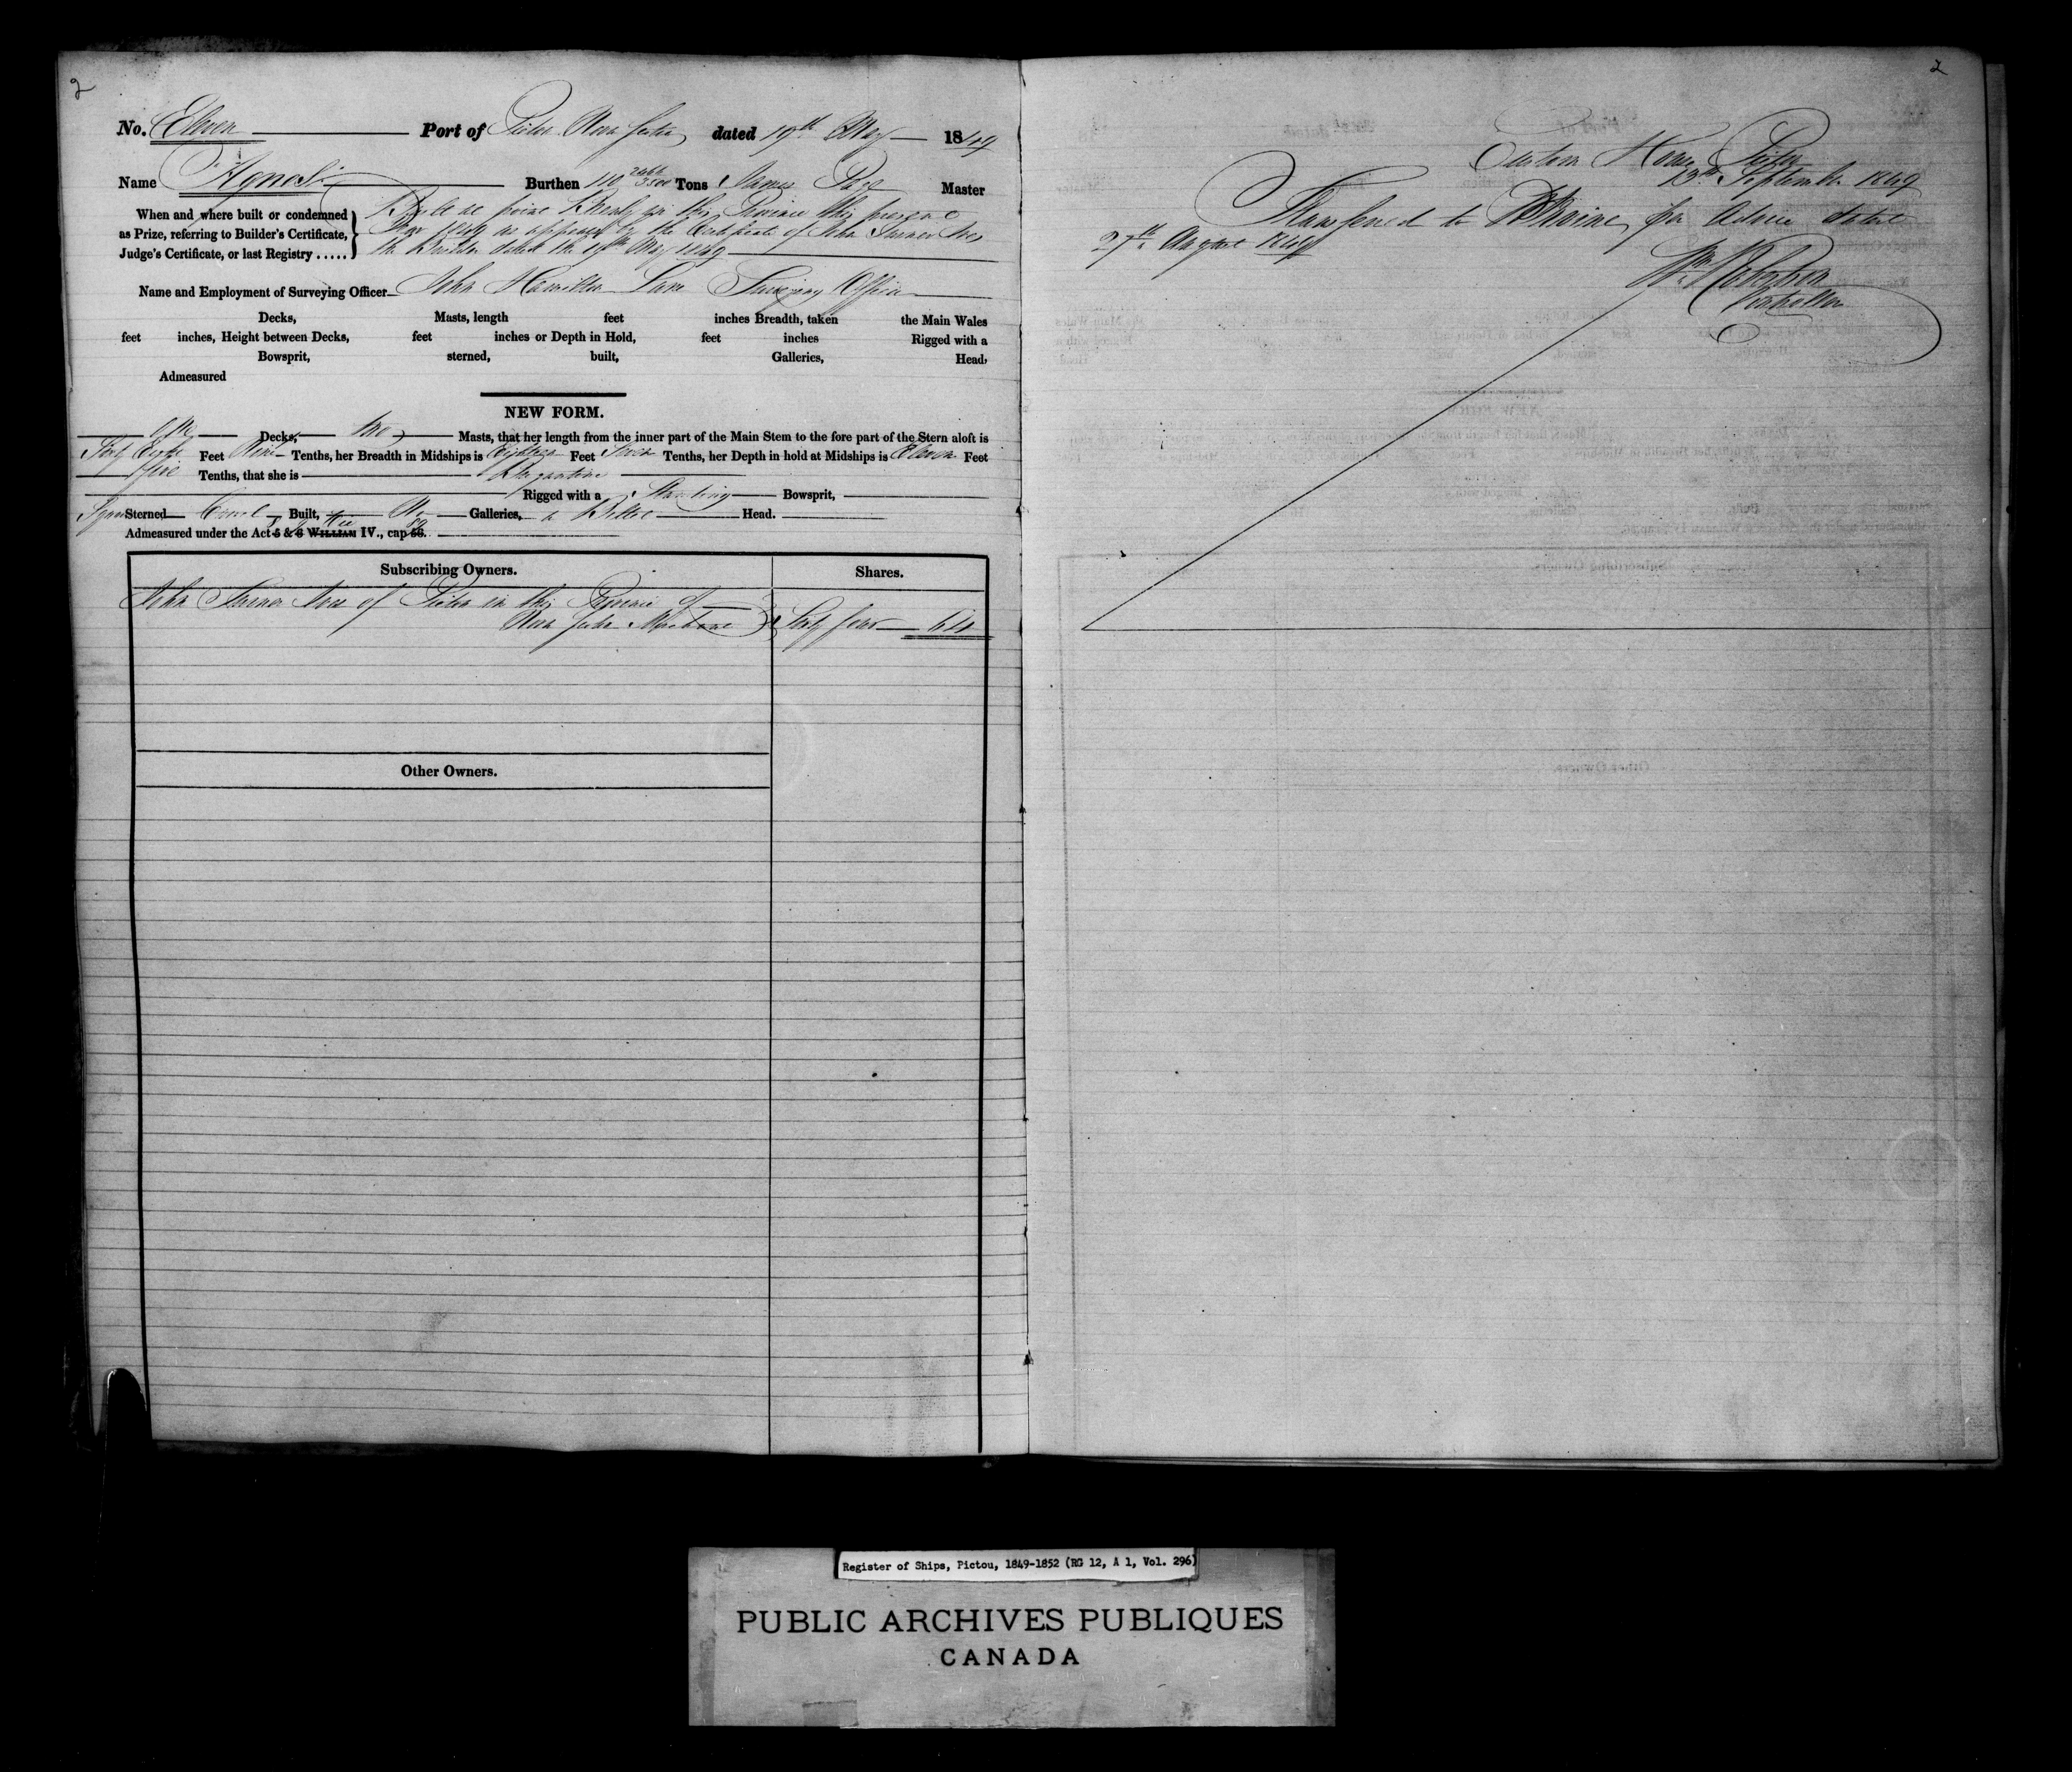 2
No. Eleven Port of Pictou Nova Scotia dated 19th May 1849
Name "Agnes" Burthen 110 /3500 Tons James Master
When and where built or condemned
as Prize, referring to Builder's Certificate,
Judge's Certificate, or last Registry .....
Built at in this Province this present
year 1849 as appears by the Certificate of John
the Builder dated the 19th May 1849
Name and Employment of Surveying Officer John Hamilton Lane Surveying Officer
Decks, Masts, length feet inches Breadth, taken the Main Wales
feet inches, Height between Decks, feet inches or Depth in Hold, feet inches Rigged with a
Bowsprit, sterned, built, Galleries, Head,
Admeasured
NEW FORM.
One Decks, two Masts, that her length from the inner part of the Main Stem to the fore part of the Stern aloft is
Eight Feet Nine Tenths, her Breadth in Midships is Eighteen Feet Seven Tenths, her Depth in hold at Midships is Eleven Feet
Five Tenths, that she is Brigantine
Rigged with a Standing Bowsprit,
Square Sterned Carvel Built, No Galleries, a Billet Head.
Admeasured under the Act 5 & 6 WILLIAM IV., cap 56.
Subscribing Owners. Shares.
John of Pictou in the Province of
Nova Scotia Merchant Sixty four 64
Other Owners.
2
Custom House Pictou
13th September 1849
Transferred to per Advice dated
27th August 1849
Wm Robertson
Controller
Register of Ships, Pictou, 1849-1852 (RG 12, A 1, Vol. 296)
PUBLIC ARCHIVES PUBLIQUES
CANADA